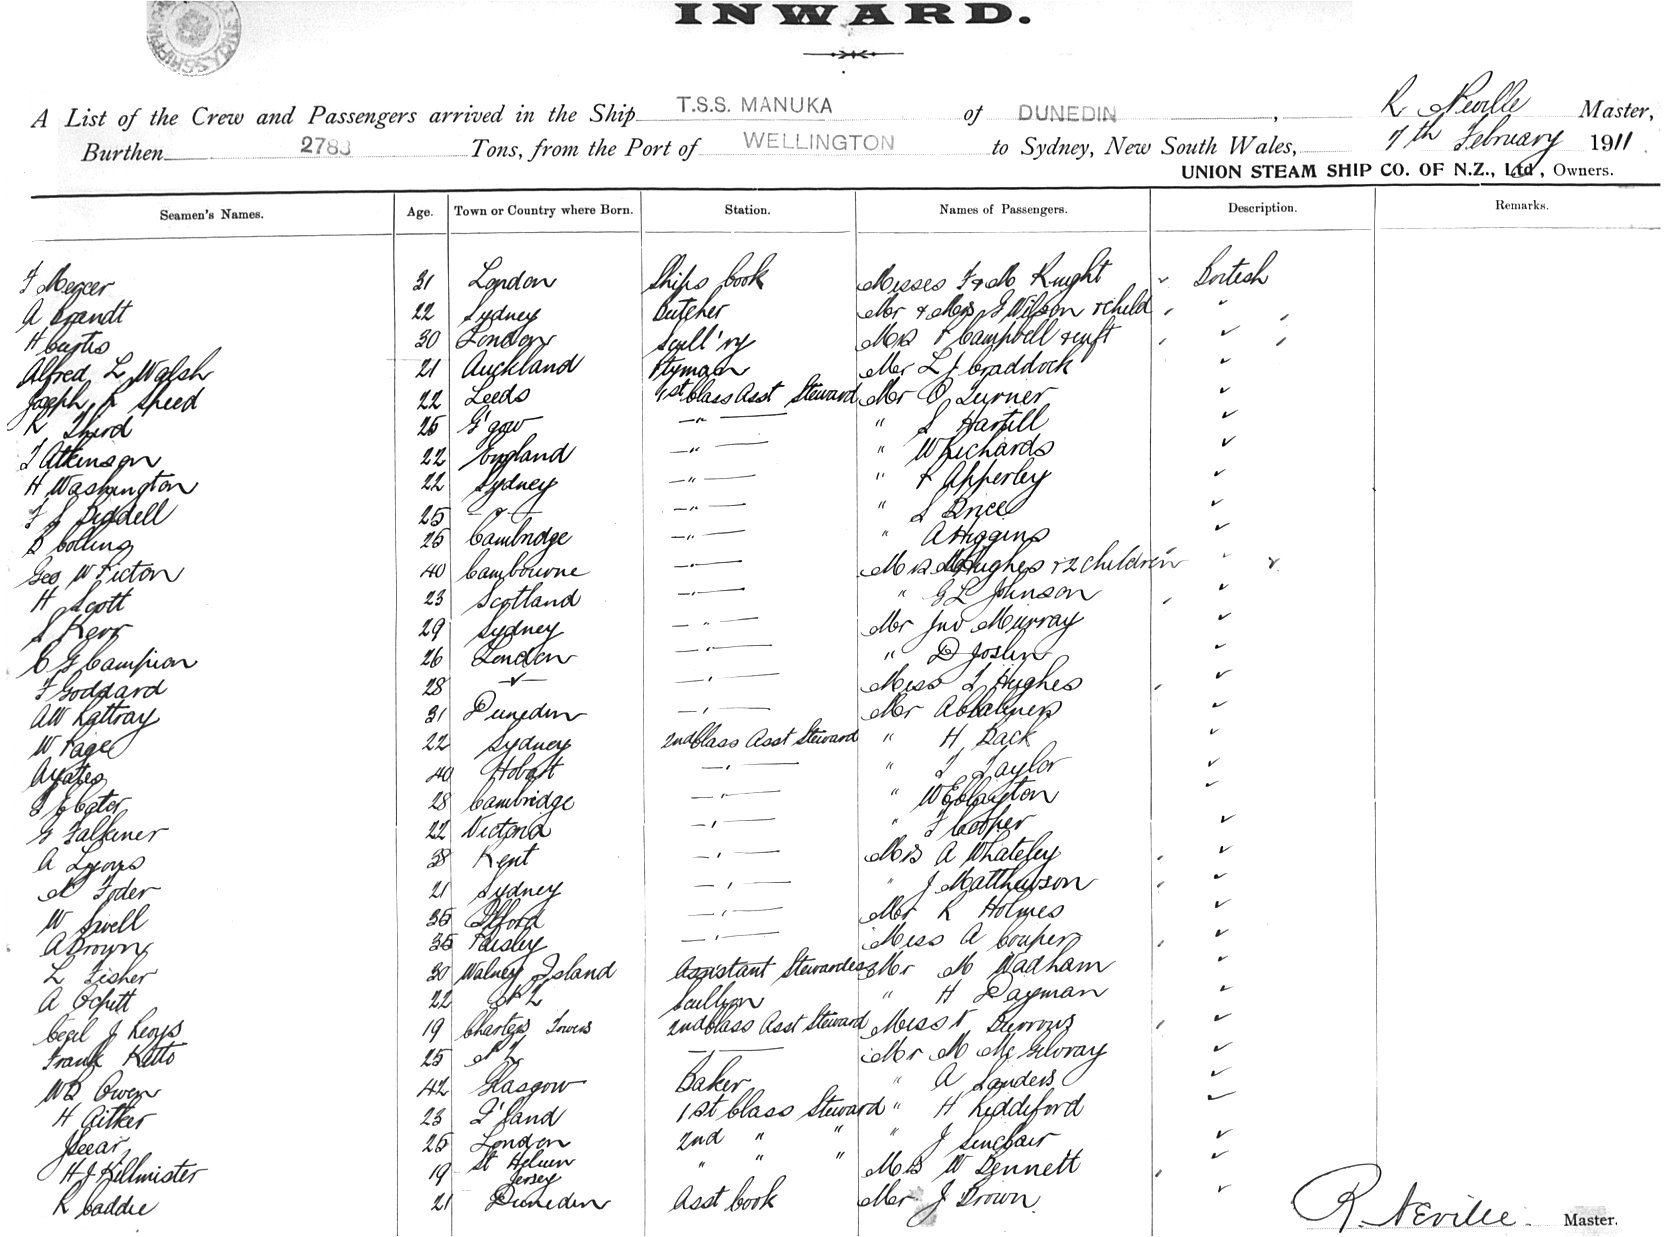 INWARD.
A List of the Crew and Passengers arrived in the Ship T.S.S. MANUKA of DUNEDIN, R Neville Master,
Burthen 2783 Tons, from the Port of WELLINGTON to Sydney, New South Wales, 7th February 1911.
UNION STEAM SHIP CO. OF N.Z., Ltd, Owners.
Seamen's Names. Age. Town or Country where Born. Station. Names of Passengers. Description. Remarks.
F Mercer 31 London Ships Cook Misses F & M Knight British
A Brandt 22 Sydney Butcher Mr & Mrs G Wilson & child "
H Curtis 30 London Scull'ry Mrs Campbell & inft "
Alfred L Walsh 21 Auckland P'tyman Mr L J Craddock "
Joseph Speed 22 Leeds 1st Class Asst Steward Mr O Turner "
R Third 25 G'gow " " S Hartill "
T Atkinson 22 England " " W Richards "
H Washington 22 Sydney " " Apperley "
F S Liddell 25 " " " S Price "
B Colling 25 Cambridge " " A Higgins "
Geo W Picton 40 Cambourne " Mrs Hughes & 2 children "
H Scott 23 Scotland " " G L Johnson "
S Kerr 29 Sydney " Mr Jno Murray "
C G Campion 26 London " " D Joslin "
F Goddard 28 " " Miss T Hughes "
AW Rattray 31 Dunedin " Mr A "
W Page 22 Sydney 2nd Class Asst Steward " H Back "
A Yates 40 Hobart " " T Taylor "
Cator 28 Cambridge " " W E Clayton "
G Falkiner 22 Victoria " " F Cooper "
A Lyons 38 Kent " Mrs A Whateley "
Foder 21 Sydney " " J Matthewson "
W Swell 35 Ilford " Mr R Holmes "
A Brown 35 Paisley " Miss A Couper "
L Fisher 30 Walney Island Assistant Stewardess Mr M Wadham "
A 22 N Z Scullion " H Dayman "
Cecil J Leoys 19 Charters Towers 2nd Class Asst Steward Miss Burrows "
Frank Kitto 25 N Z " Mr M McGilvray "
WB Owen 42 Glasgow Baker " A Sanders "
H Aitken 23 1st Class Steward " H Riddiford "
25 London 2nd " " " J Sinclair "
H J Killmister 19 St Helier Jersey " " " Mrs W Bennett "
R Caddie 21 Dunedin Asst Cook Mr J Brown "
R. Neville. Master.